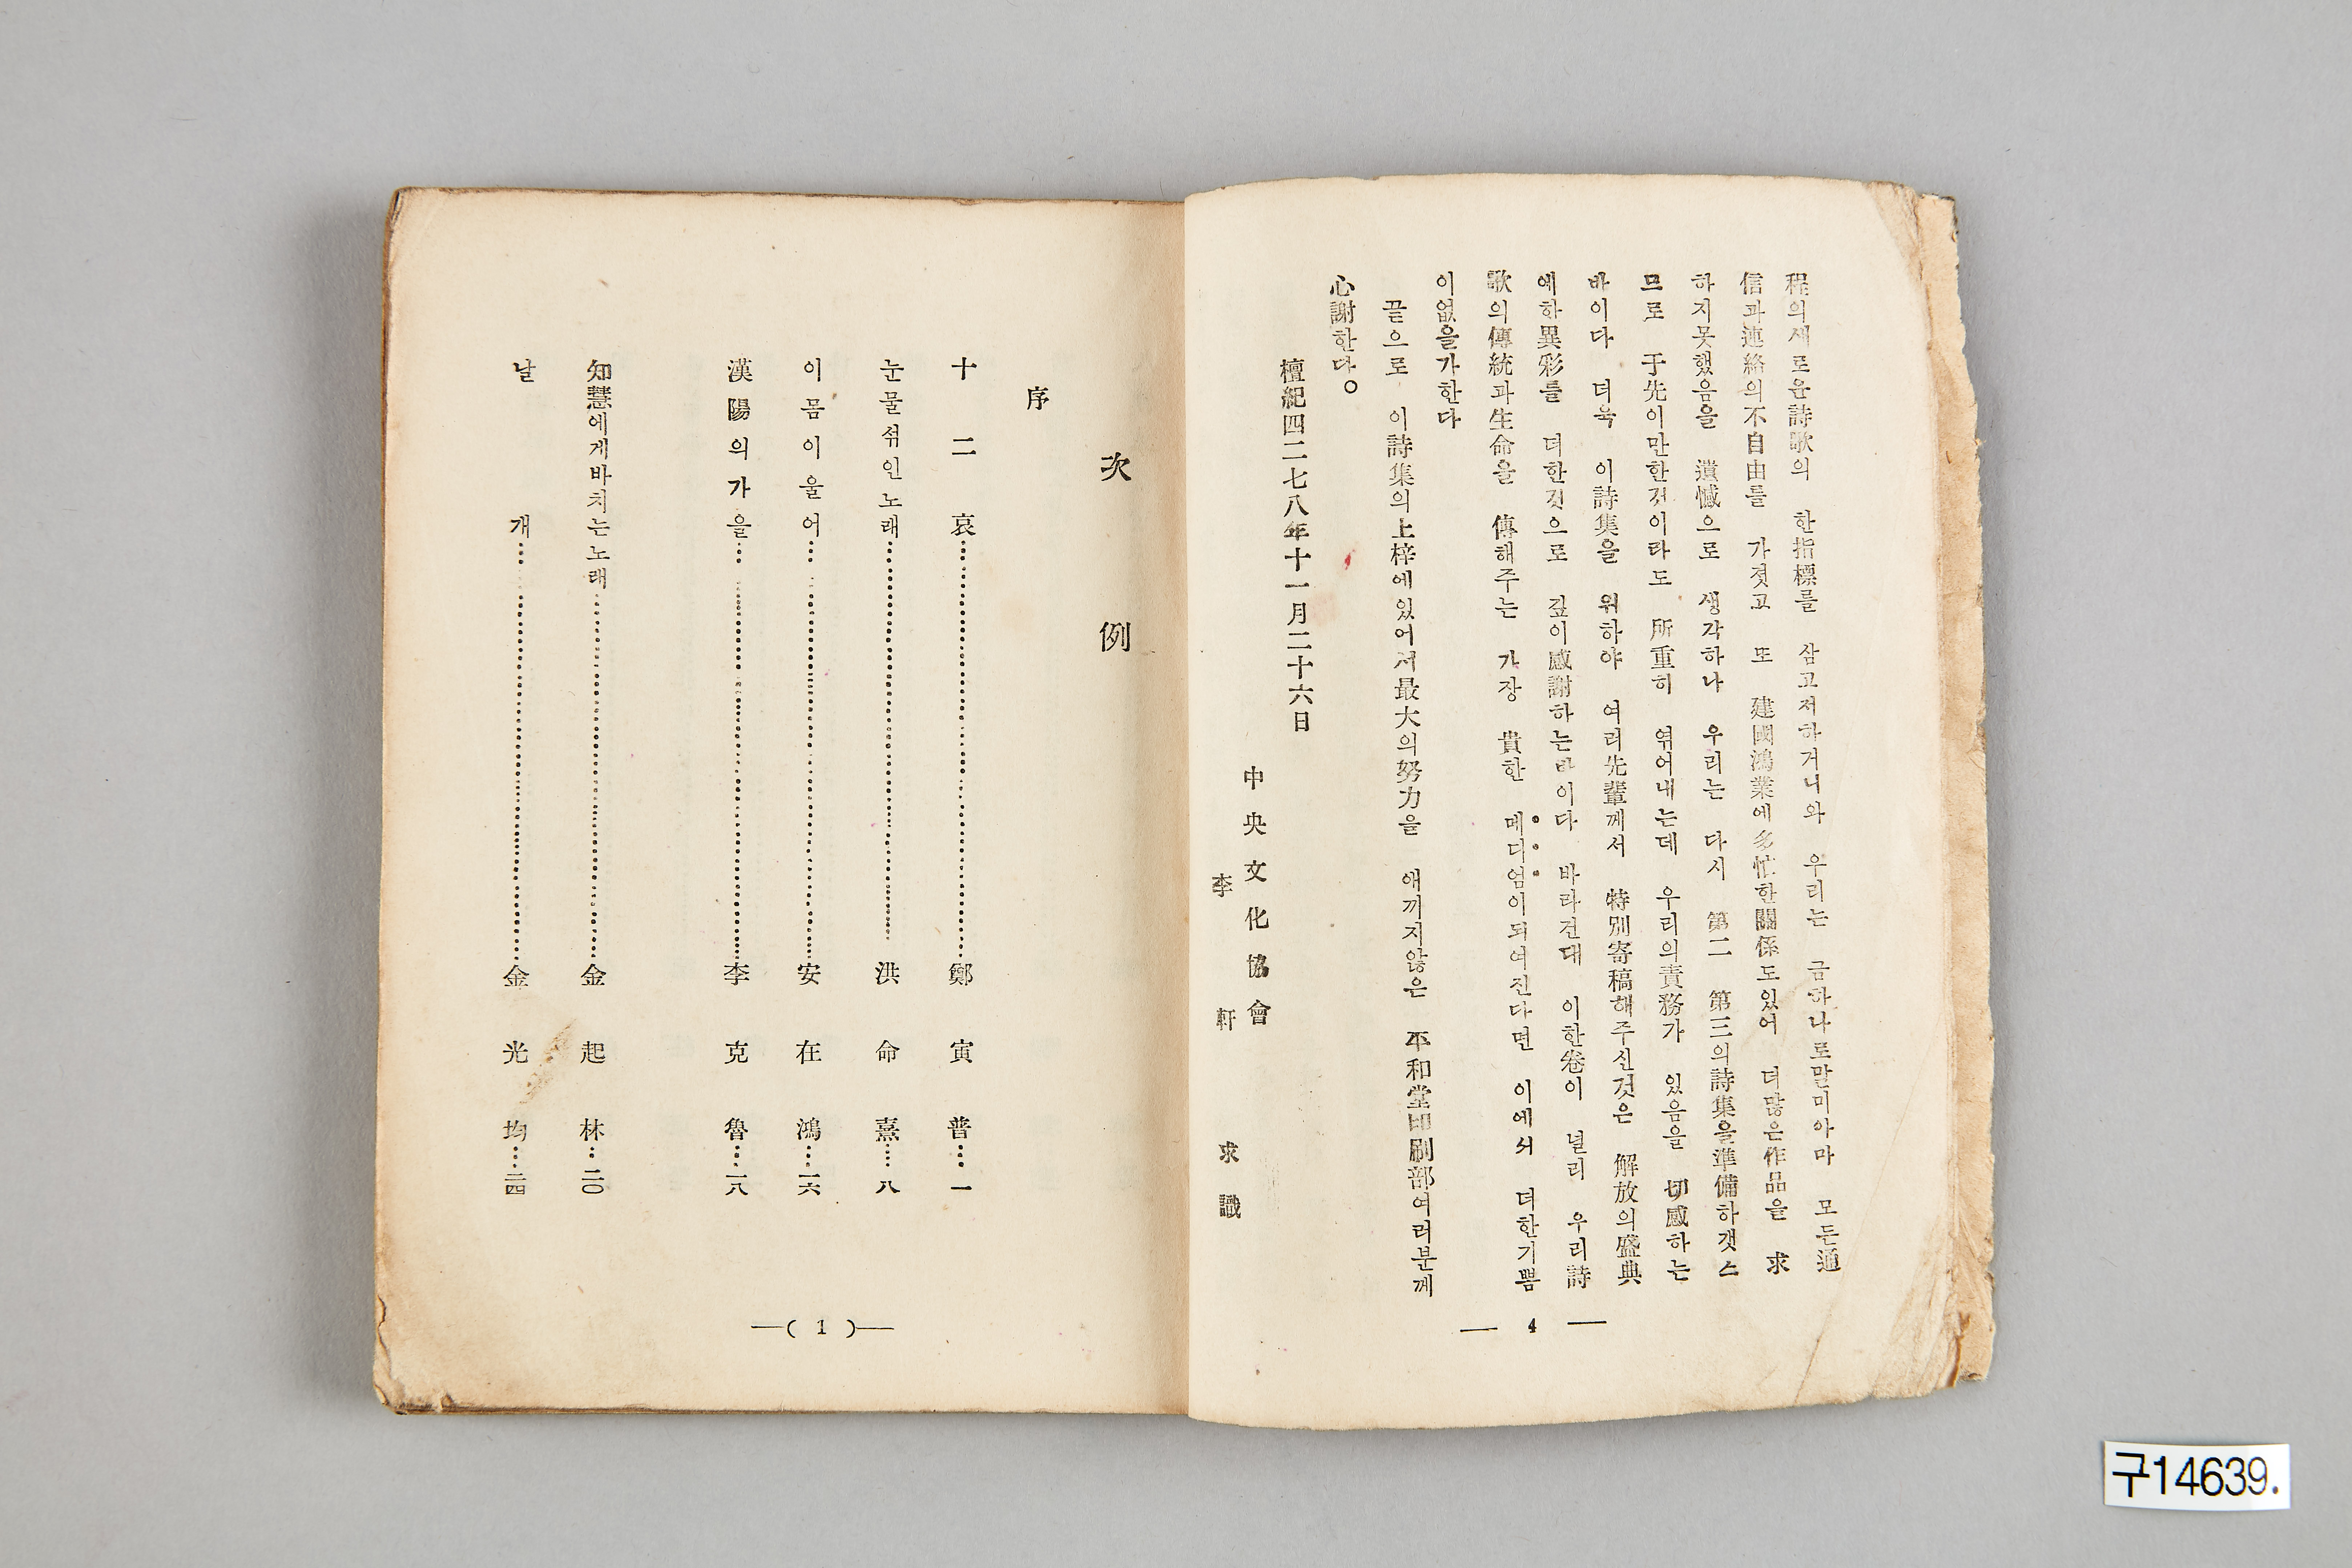 程의새로운詩歌의 한指標를 삼고저하거니와 우리는 금하나로말미아마 모든通
信과連絡의不自由를 가젓고 또 建國鴻業에多忙한關係도있어 더많은作品을 求
하지못했음을 遺憾으로 생각하나 우리는 다시 第二 第三의詩集을準備하갯스
므로 于先이만한것이라도 所重히 엮어내는데 우리의責務가 있음을 切感하는
바이다 더욱 이詩集을 위하야 여러先輩께서 特別寄稿해주신것은 解放의盛典
에한異彩를 더한것으로 깊이感謝하는바이다 바라건대 이한卷이 널리 우리詩
歌의傳統과生命을 傳해주는 가장 貴한 메디엄이되여진다면 이에서 더한기쁨
이없을가한다
끝으로 이詩集의上梓에있어서最大의努力을 애끼지않은 平和堂印刷部여러분께
心謝한다。
檀紀四二七八年十一月二十六日
中央文化協會
李軒求識
— 4 —
次例
序
十二哀………鄭寅普…一
눈물섞인노래………洪命熹…八
이몸이울어………安在鴻…一六
漢陽의가을………李克魯…一八
知慧에게바치는노래………金起林…二〇
날개………金光均…二四
—( 1 )—
구14639.